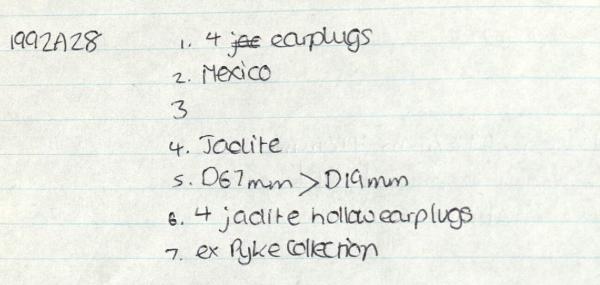 1992A28 1. 4 jae earplugs
2. Mexico
3
4. Jadite
5. D67mm > D19mm
6. 4 jadite hollow earplugs
7. ex Pyke Collection